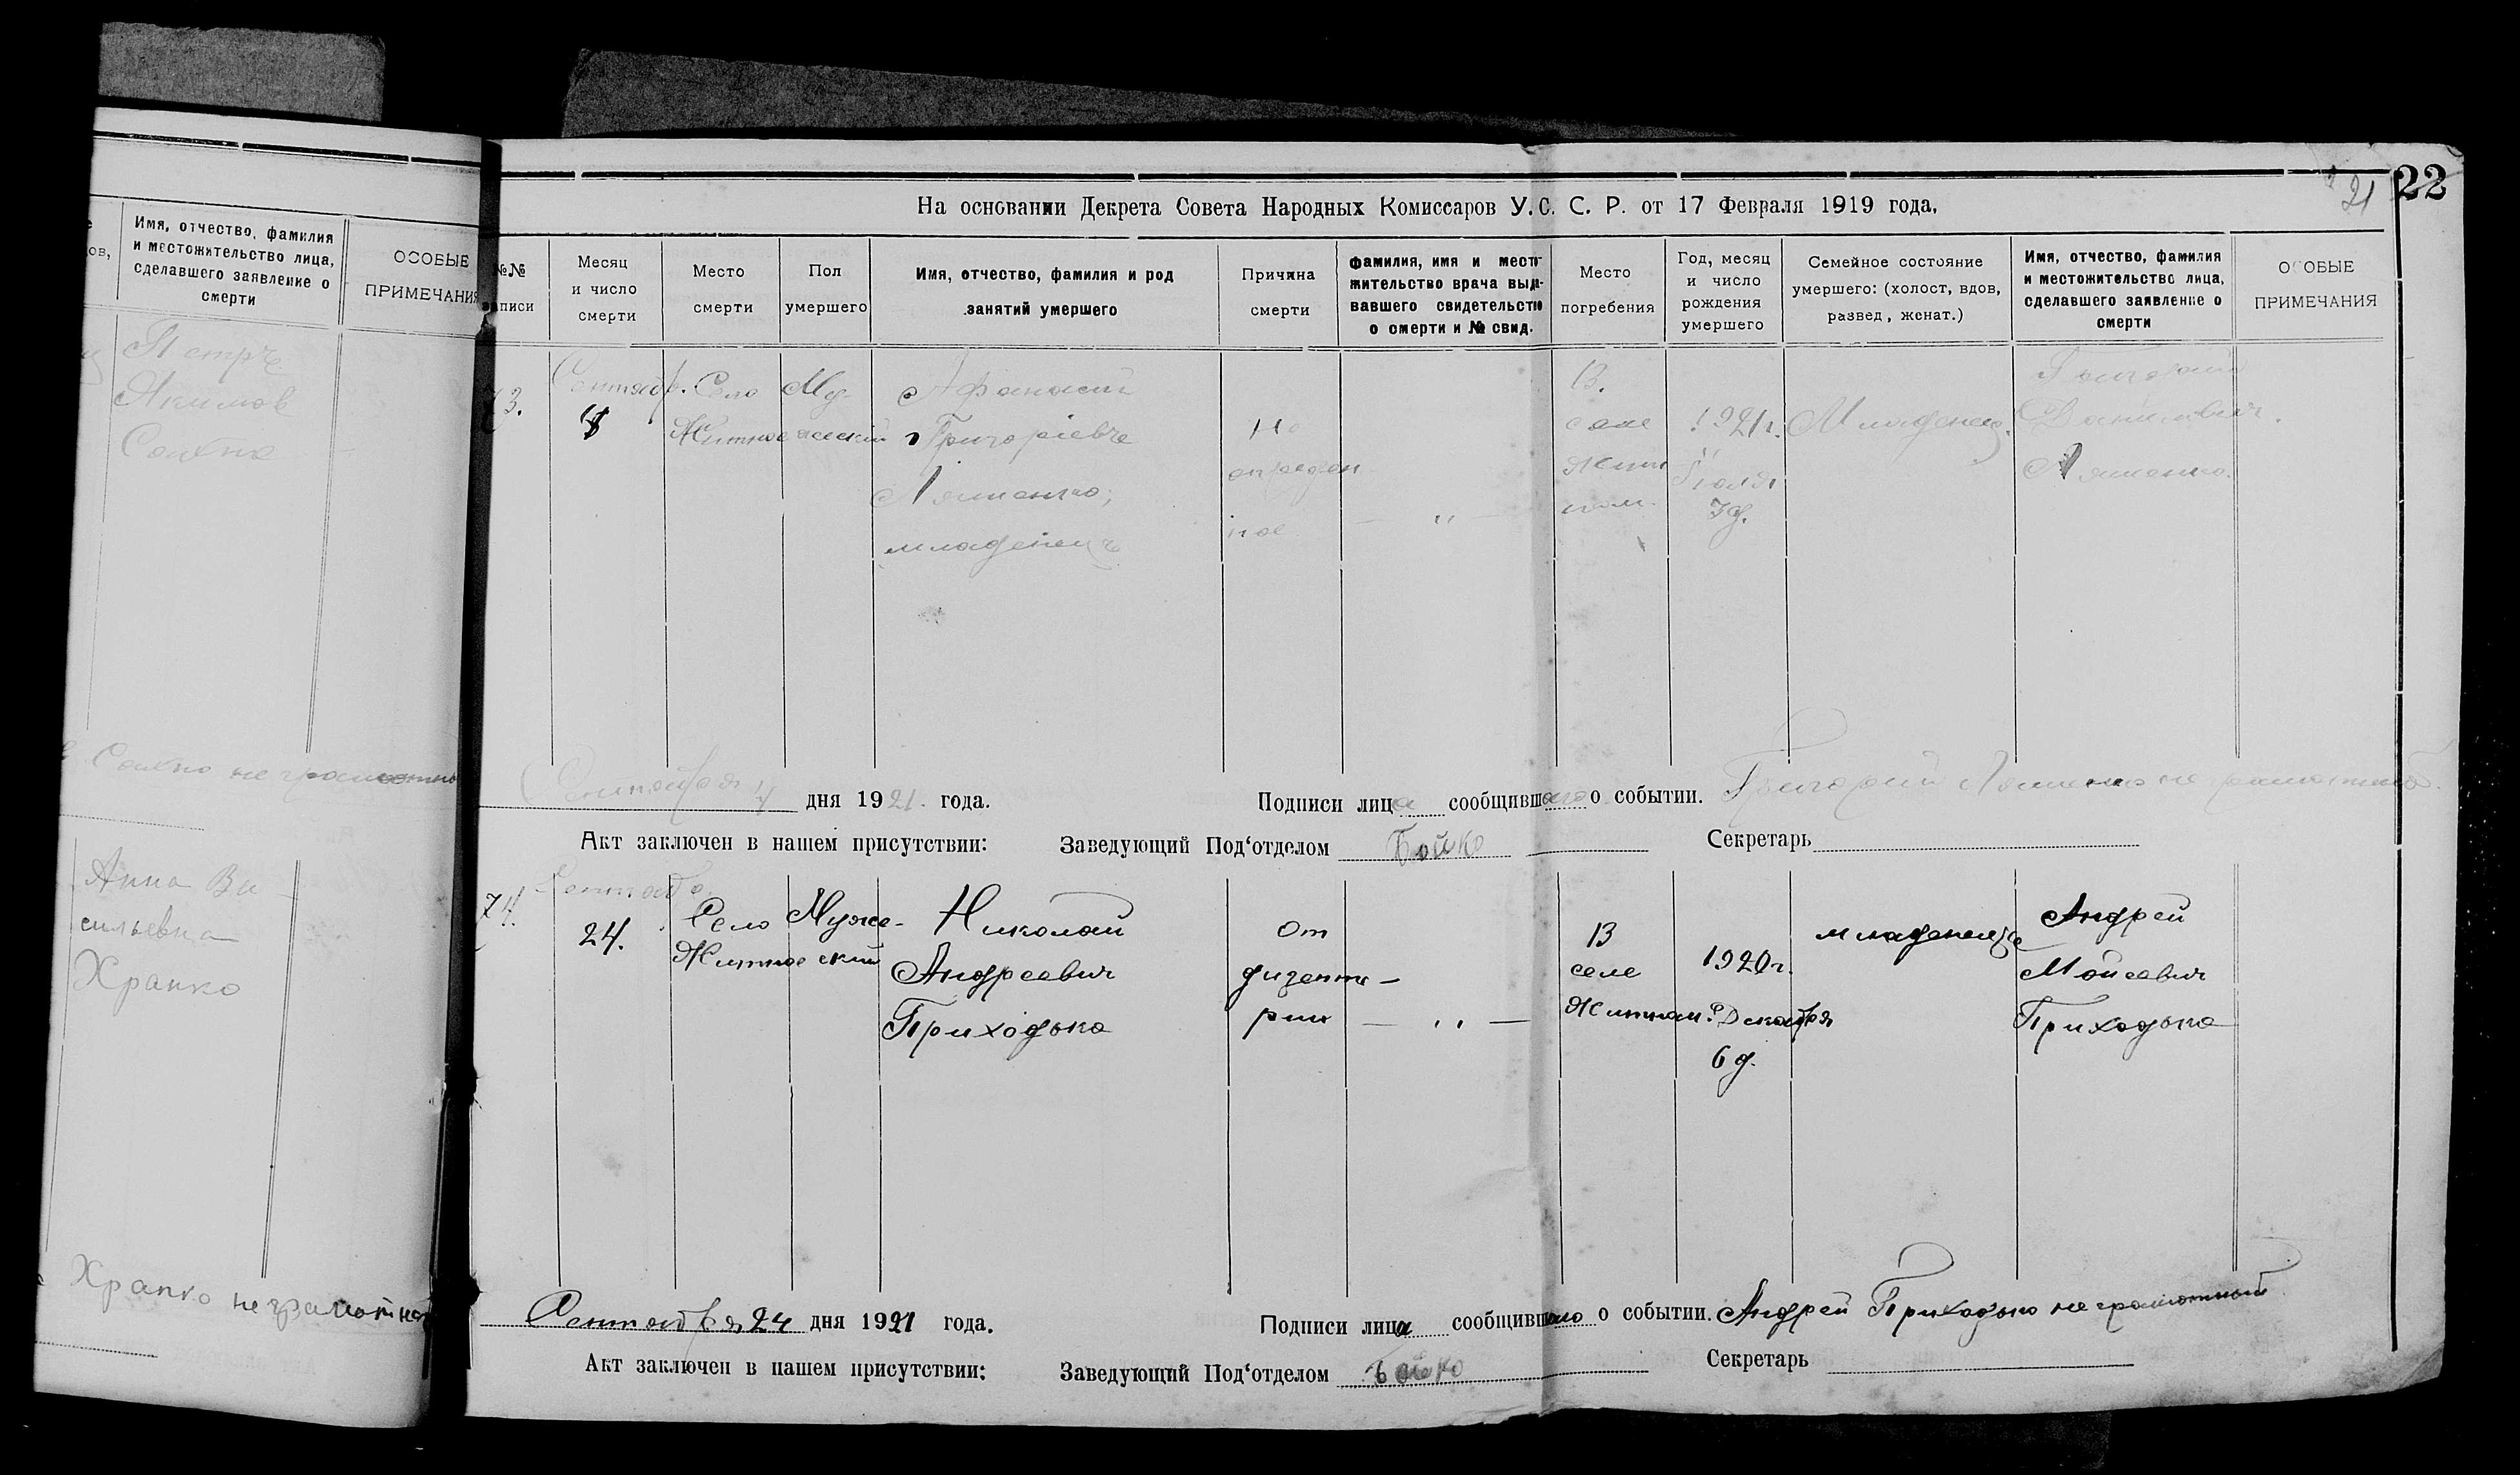 Имя, отчество, фамилия
и местожительство лица,
сделавшего заявление о
смерти
ОСОБЫЕ
ПРИМЕЧАНИЯ
Петръ
Якимов
не грамотны
Анна Ва
сильевна
Храпко
Храпко неграмотная
22
21
На основании Декрета Совета Народных Комиссаров У. С. С. Р. от 17 Февраля 1919 года.
№№
записи
Месяц
и число
смерти
Место
смерти
Пол
умершего
Имя, отчество, фамилия и род
занятий умершего
Причина
смерти
фамилия, имя и место-
жительство врача выда-
вавшего свидетельство
о смерти и № свид.
Место
погребения
Год, месяц
и число
рождения
умершего
Семейное состояние
умершего: (холост, вдов,
развед, женат.)
Имя, отчество, фамилия
и местожительство лица,
сделавшего заявление о
смерти
ОСОБЫЕ
ПРИМЕЧАНИЯ
73.
Сентябр.
Село
Житное
Му-
жеский
Афанасий
Григоріевчъ
Ляшенко,
младенецъ
Не
определен
ное
— " —
В.
селе
Жит
ном.
1921 г.
Июля
7 д.
Младенец.
Григорий
Данилович.
Ляшенко.
Сентября 4 дня 1921. года.
Подписи лица сообщившаго о событии. Григорий Ляшенко не грамотный
Акт заключен в нашем присутствии: Заведующий Под‘отделом Бойко Секретарь
74.
Сентяб.
24.
Село
Житное
Муже-
ский
Николай
Андреевич
Приходько
От
дизенте-
рии
— " —
В
селе
Житном
1920 г.
Декабря
6 д.
младенецъ
Андрей
Мойсевич
Приходько
Сентября 24 дня 1921 года.
Подписи лица сообщившаго о событии. Андрей Приходько неграмотный
Акт заключен в нашем присутствии: Заведующий Под‘отделом Бойко Секретарь